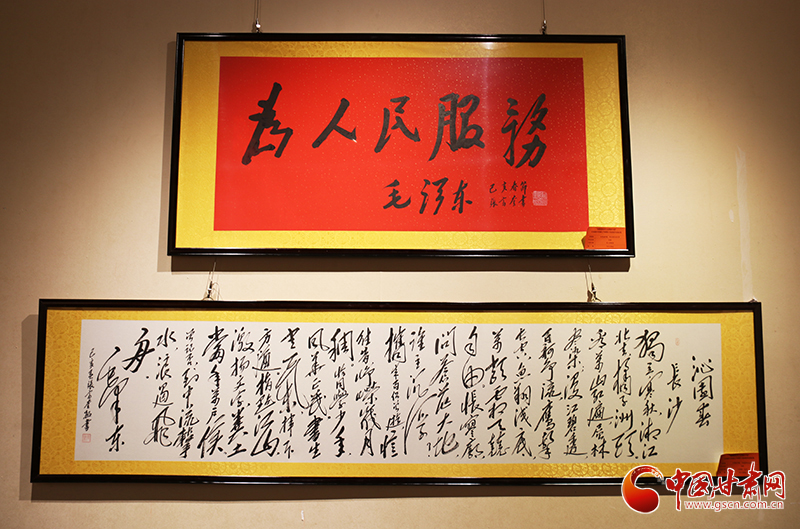 為人民服務
毛泽东
沁園春
长沙
独立寒秋湘江
北去橘子洲頭
看萬山红遍层林
尽染漫江碧透
百舸争流鹰擊
长空魚翔浅底
萬類霜天競
自由悵寥廓
問蒼茫大地
誰主沉浮
携来百侣曾遊憶
往昔峥嵘歲月
稠恰同學少年
風華正茂書生
意气揮斥
方遒指點江山
激揚文字糞土
當年萬户侯
曾記否到中流擊
水浪遏飛
舟毛泽东
中国甘肃网
www.gscn.com.cn